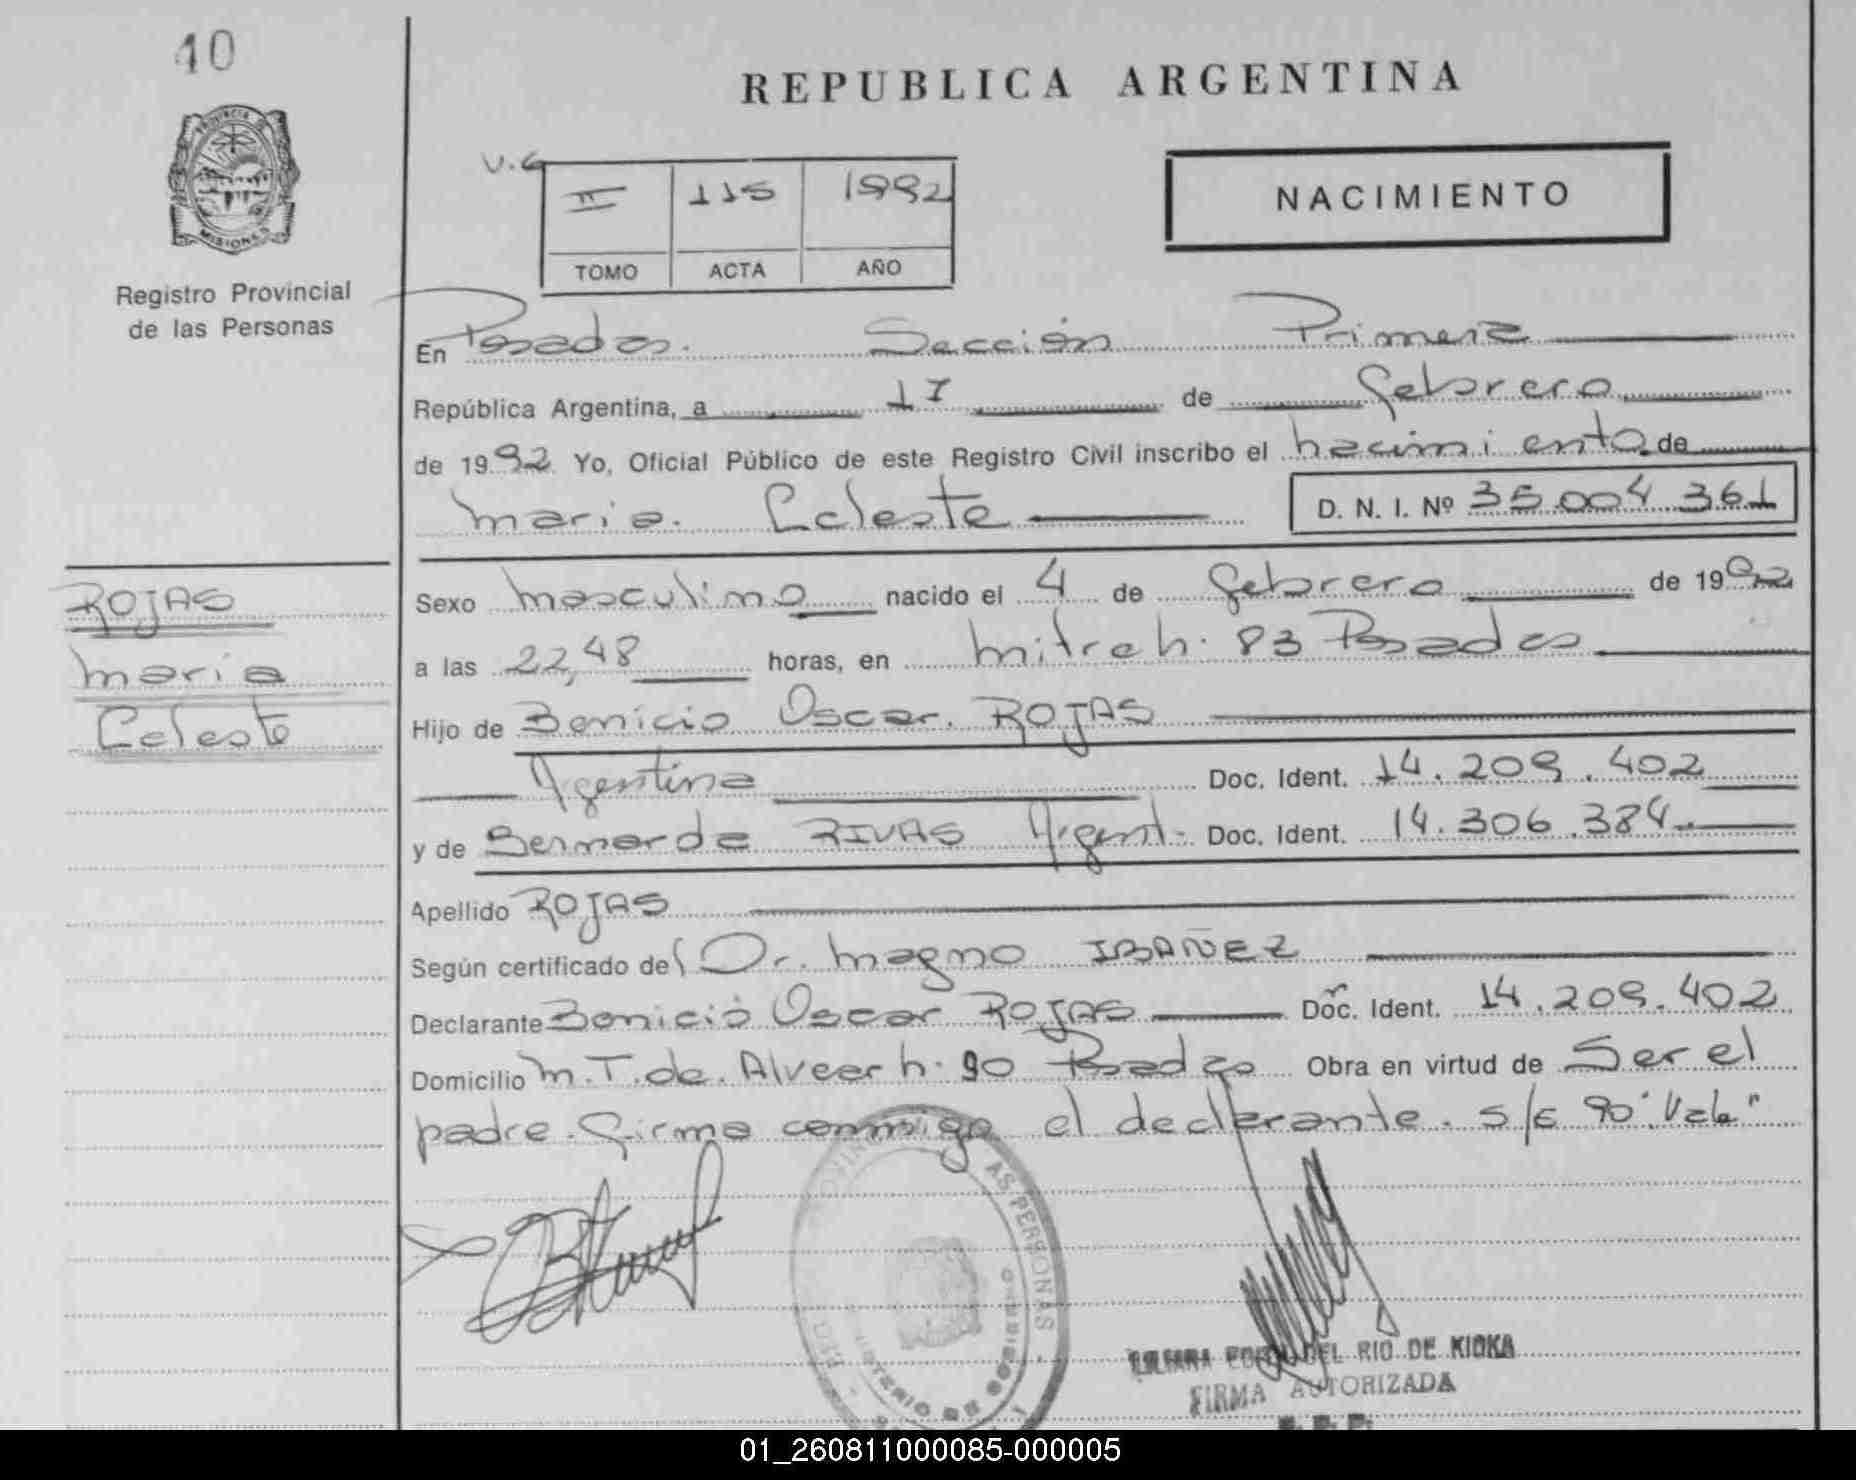 10
PROVINCIA DE
MISIONES
Registro Provincial
de las Personas
REPUBLICA ARGENTINA
NACIMIENTO
II 115 1992
TOMO ACTA AÑO
En Posadas. Sección Primera
República Argentina, a 17 de febrero
de 1992 Yo, Oficial Público de este Registro Civil inscribo el nacimiento de
Maria Celeste D. N. I. Nº 35.004.361
ROJAS
Maria
Celeste
Sexo masculino nacido el 4 de febrero de 1992
a las 22,48 horas, en Mitre h. 83 Posadas
Hijo de Benicio Oscar ROJAS
Argentina Doc. Ident. 14.209.402
y de Bernarda RIVAS Argent. Doc. Ident. 14.306.384.
Apellido ROJAS
Según certificado del Dr. Magno IBAÑEZ
Declarante Benicio Oscar ROJAS Doc. Ident. 14.209.402
Domicilio M.T. de Alvear h. 90 Posadas Obra en virtud de Ser el
padre. firma conmigo el declarante. s/e 90 "Vale"
AS PERSONAS
DE GOBIERNO
DEL RIO DE KIOKA
FIRMA AUTORIZADA
01_260811000085-000005